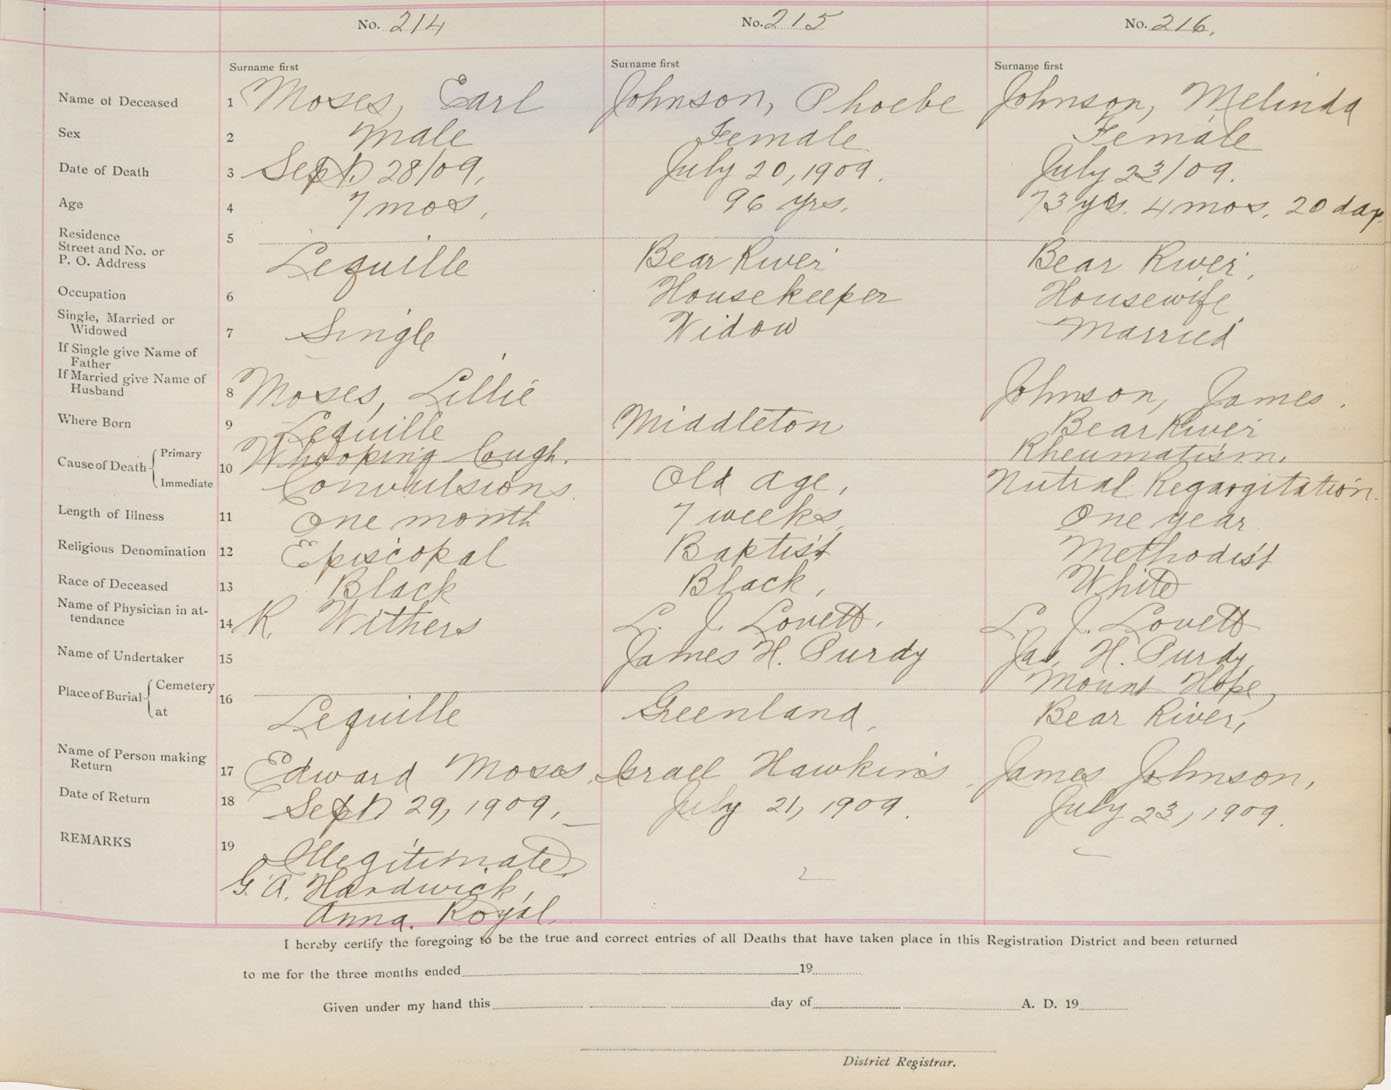 No. 214 No. 215 No. 216.
Surname first Surname first Surname first
Name of Deceased 1 Moses, Earl Johnson, Phoebe Johnson, Melinda
Sex 2 Male Female Female
Date of Death 3 Sept. 28/09. July 20, 1909. July 23/09.
Age 4 7 mos. 96 yrs. 73 yrs. 4 mos. 20 day.
Residence 5
Street and No. or
P. O. Address Lequille Bear River Bear River.
Occupation 6 Housekeeper Housewife
Single, Married or
Widowed 7 Single Widow Married
If Single give Name of
Father
If Married give Name of
Husband 8 Moses, Lillie Johnson, James.
Where Born 9 Lequille Middleton Bear River
Cause of Death Primary 10 Whooping Cough. Rheumatism.
Immediate Convulsions. Old age, Nutral Regargitation.
Length of Illness 11 One month 7 weeks. One year
Religious Denomination 12 Episcopal Baptist Methodist
Race of Deceased 13 Black Black, White
Name of Physician in at-
tendance 14 K. Withers L. J. Lovett. L. J. Lovett
Name of Undertaker 15 James H. Purdy Jas. H. Purdy,
Place of Burial Cemetery 16 Mount Hope,
at Lequille Greenland, Bear River,
Name of Person making
Return 17 Edward Moses. Israel Hawkins James Johnson,
Date of Return 18 Sept 29, 1909. July 21, 1909. July 23, 1909.
REMARKS 19 Illegitimate.
G. A. Hardwick,
Anna. Royal.
I hereby certify the foregoing to be the true and correct entries of all Deaths that have taken place in this Registration District and been returned
to me for the three months ended 19
Given under my hand this day of A. D. 19
District Registrar.